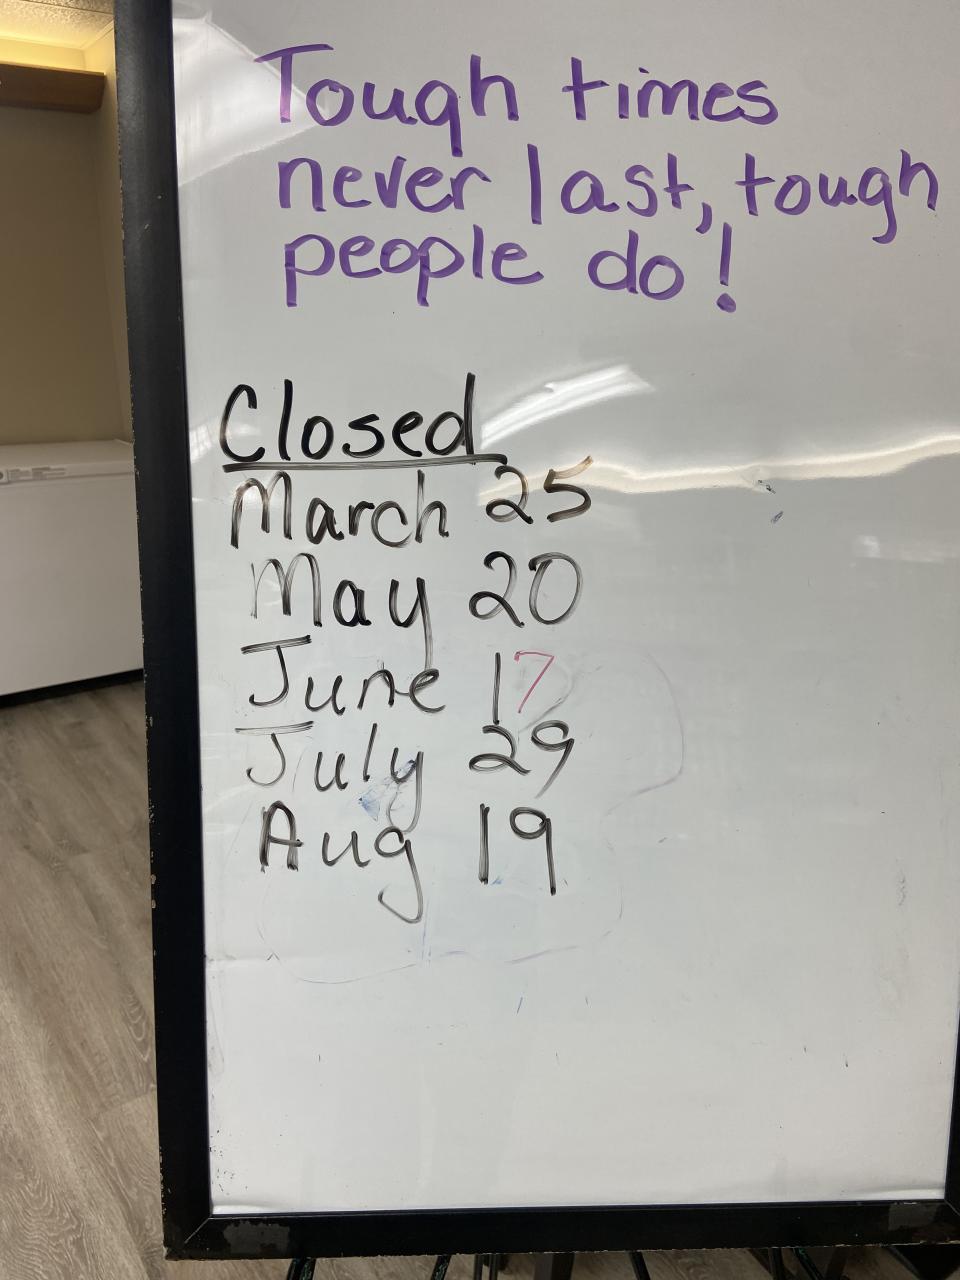 Tough times
never last, tough
people do!
Closed
March 25
May 20
June 17
July 29
Aug 19